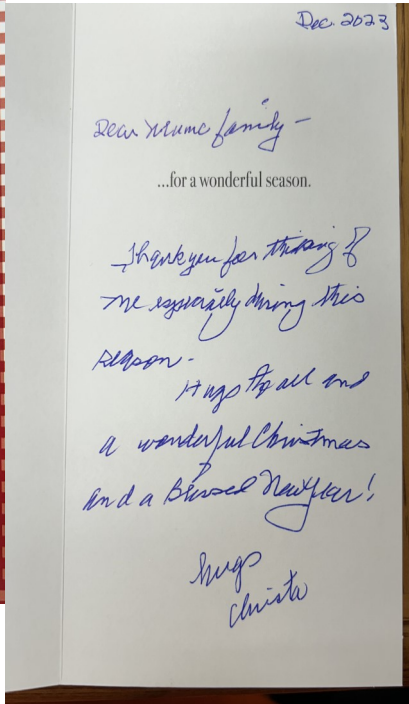 Dec. 2023
Dear Mumc family -
...for a wonderful season.
Thank you for thinking of
me especially during this
season -
Hugs to all and
a wonderful Christmas
and a Blessed New Year!
hugs
Christa